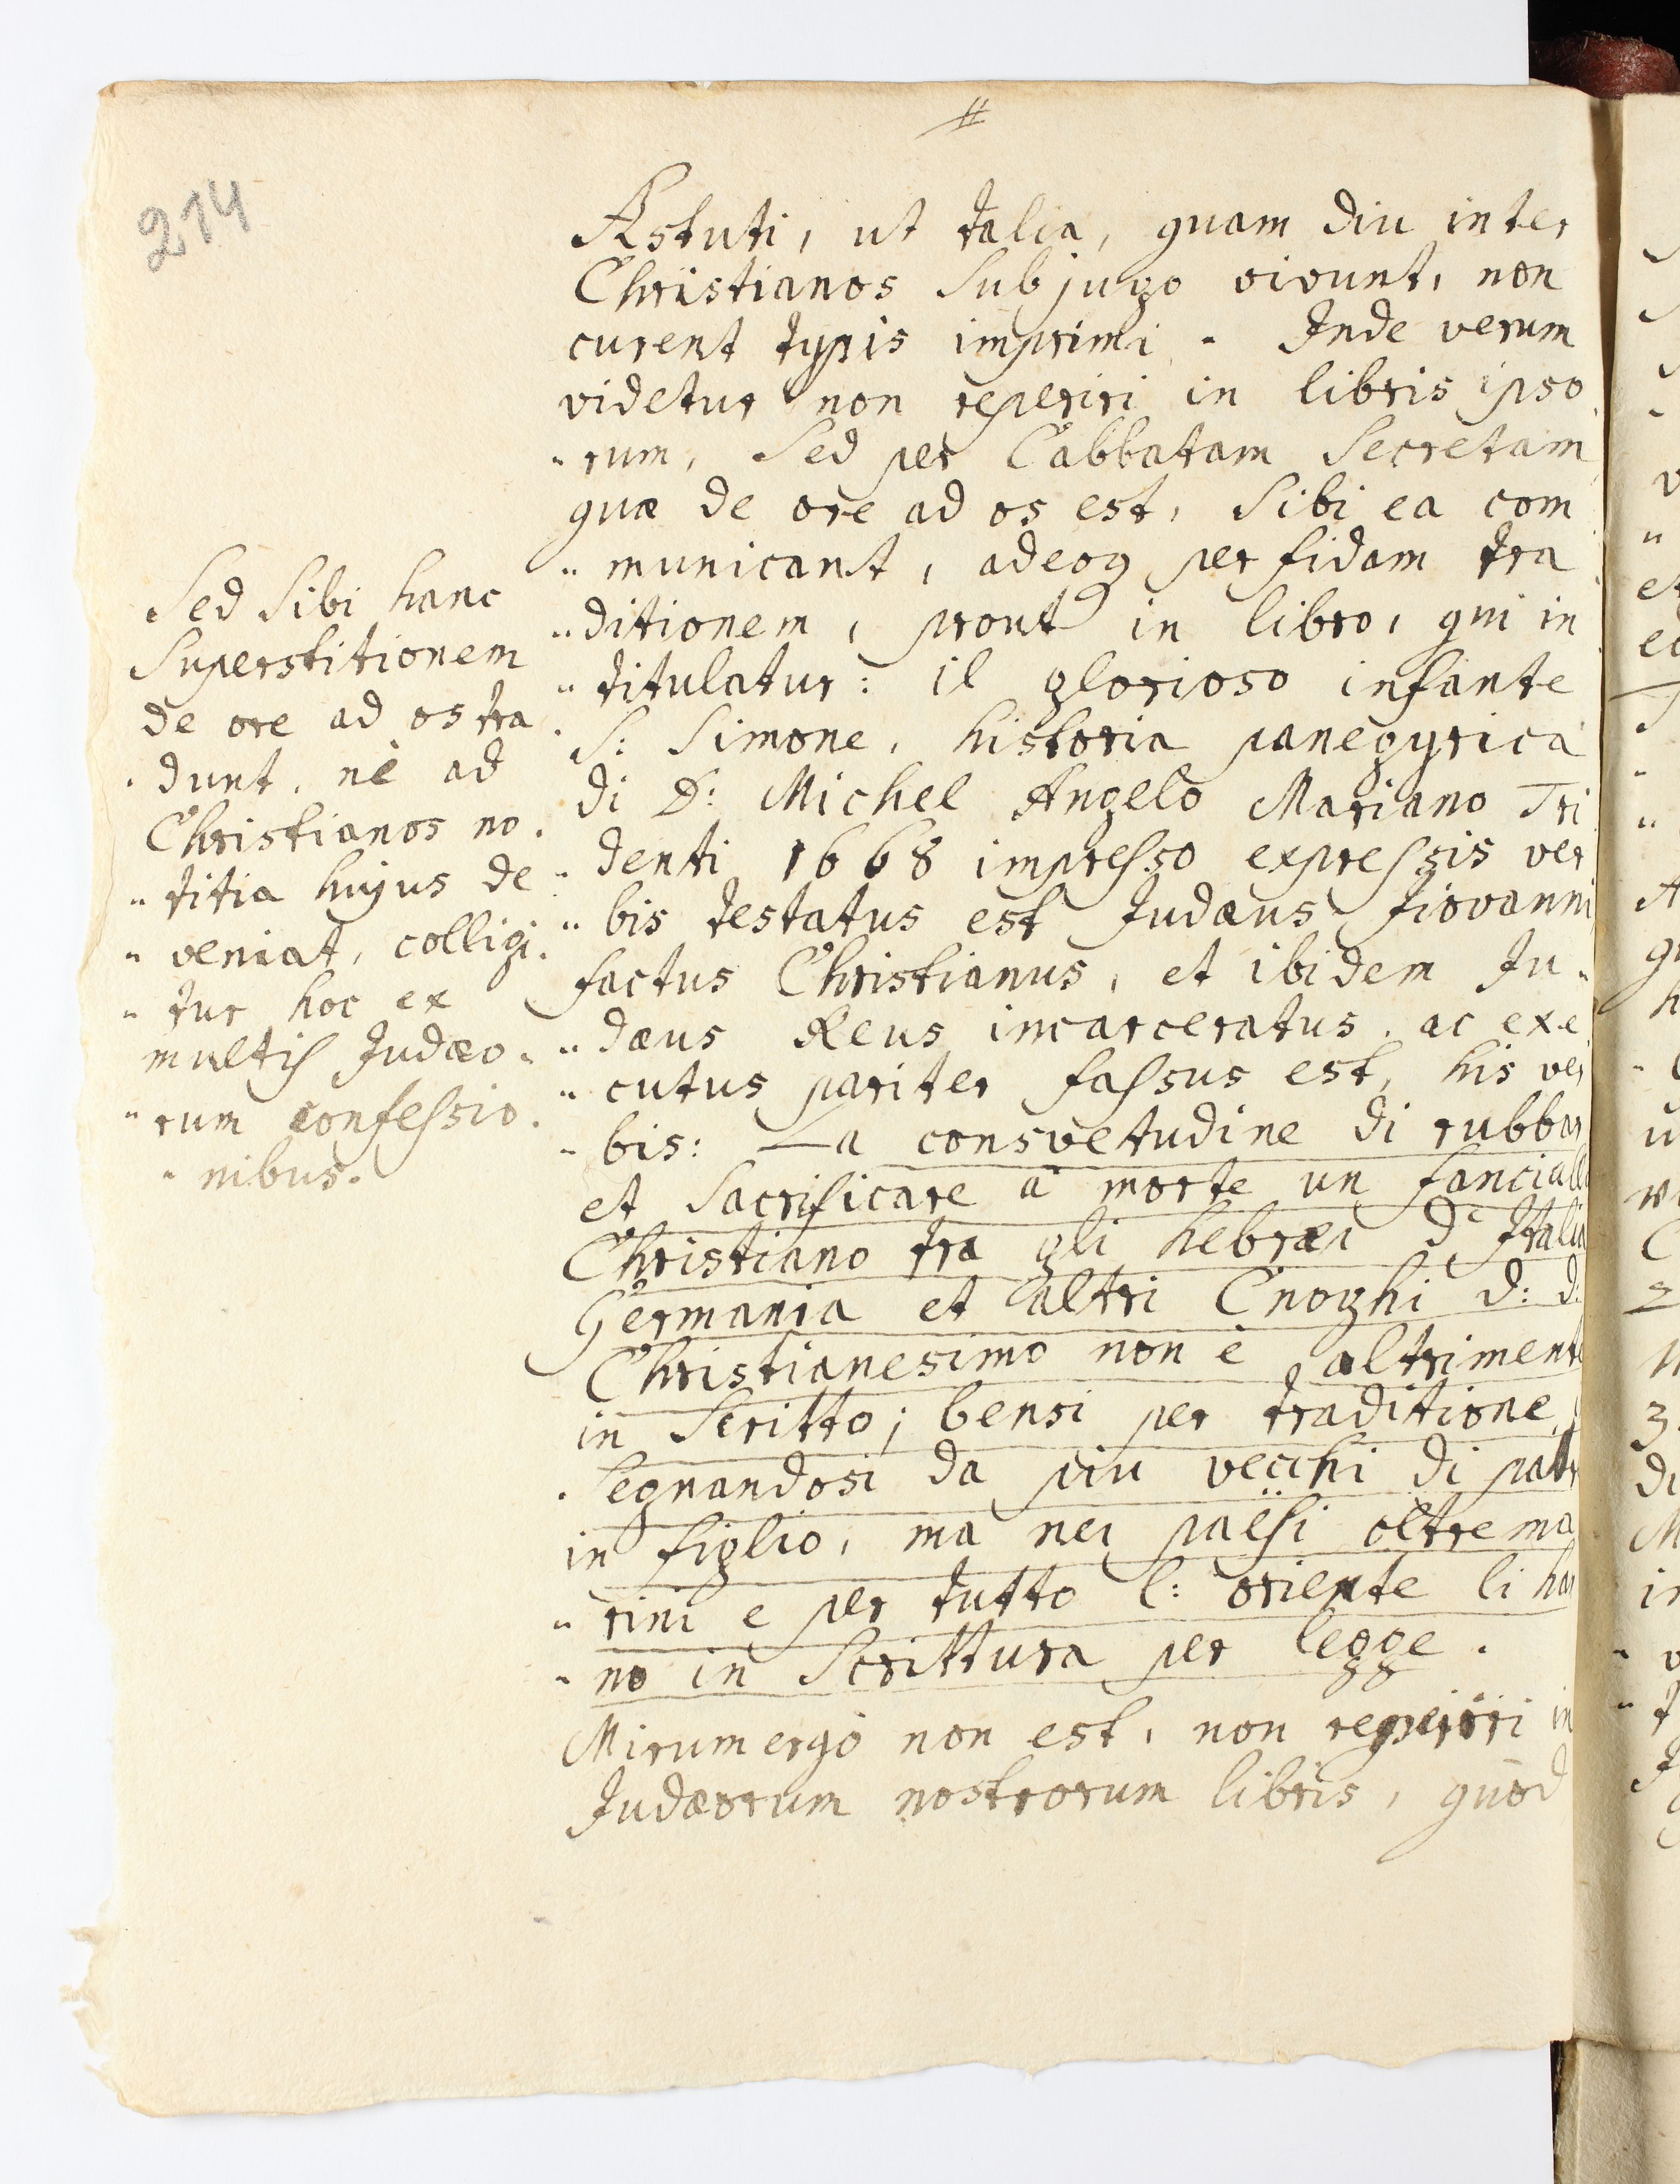 #
214
Astuti, ut talia, quam diu inter
Christianos Sub jugo vivunt, non
curent typis imprimi. Inde verum
videtur non reperiri in libris ipso
„rum, Sed per Cabbatam Secretam
quæ de ore ad os est, Sibi ea com
„municant, adeoq per fidam tra
„ditionem, prout in libro, qui in
„titulatur: il glorioso infante
S: Simone, historia panegyrica
di D: Michel Angelo Mariano Tri
„denti 1668 impresso expressis ver
„bis testatus est Judæus Jiovanni
factus Christianus, et ibidem Ju„
„dæus Reus incarceratus, ac exe
„cutus pariter fassus est, his ver
„bis: La consvetudine di rubbar
et Sacrificare à morte un fanciallo
Christiano tra gli hebræi d' Italia
Germania et altri Cnoghi d: d:
Christianesimo non è altrimente
in Scritto; bensi per traditione,
Segnandosi da piu vecchi di patr
in figlio, ma nei paësi oltrema
„rini e per tutto l: oriente li han
„no in Scrittura per legge.
Mirum ergò non est, non reperiri in
Judæorum nostrorum libris, quod
Sed Sibi hanc
Superstitionem
de ore ad os tra
„dunt, nè ad
Christianos no„
„titia hujus de
„veniat, colligi„
„tur hoc ex
multis Judæo„
„rum confessio„
„nibus.